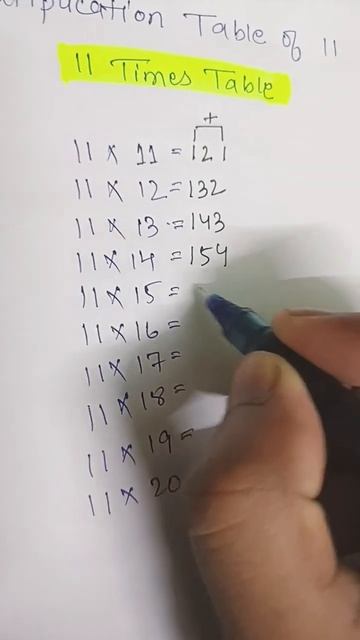 Table of 11
11 Times Table
+
11 × 11 = 121
11 × 12 = 132
11 × 13 = 143
11 × 14 = 154
11 × 15 =
11 × 16 =
11 × 17 =
11 × 18 =
11 × 19 =
11 × 20